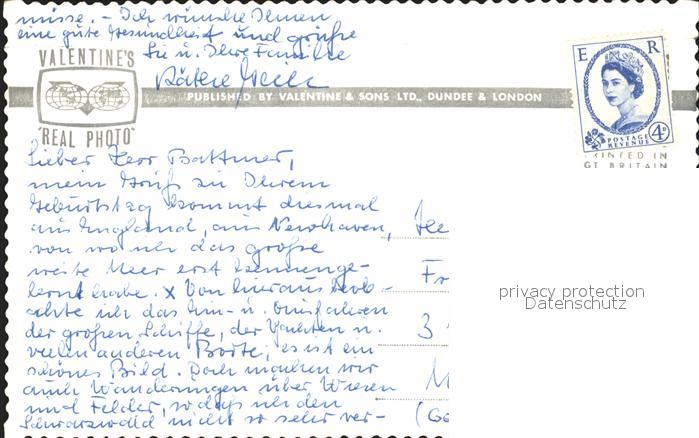 müsse. – Ich wünsche Ihnen
eine gute Gesundheit und grüße
Sie u. Ihre Familie
Käthe
VALENTINE'S
"REAL PHOTO"
PUBLISHED BY VALENTINE & SONS LTD., DUNDEE & LONDON
E R
POSTAGE
REVENUE 4D
PRINTED IN
GT. BRITAIN
Lieber Herr Battmer,
mein Gruß zu Ihrem
Geburtstag kommt diesmal
aus England, aus Newhaven,
von wo ich das große
weite Meer erst kennenge-
lernt habe. x Von hier aus beob-
achte ich das Hin- u. Ausfahren
der großen Schiffe, der Yachten u.
vielen anderen Boote; es ist ein
schönes Bild. Doch machen wir
auch Wanderungen über Wiesen
und Felder, sodaß ich den
Schwarzwald nicht so sehr ver-
Fr
3
M
(Ge
privacy protection
Datenschutz